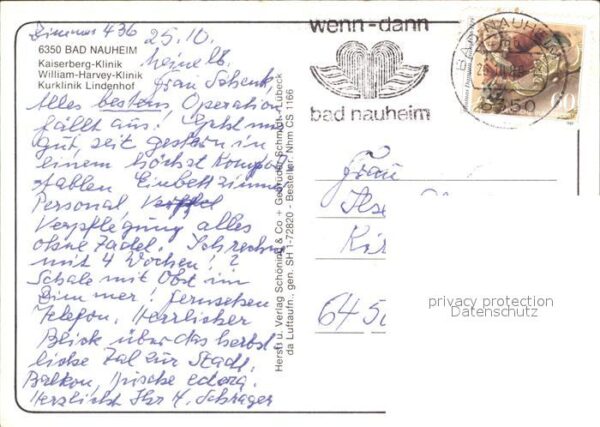 Zimmer 436
25.10.
6350 BAD NAUHEIM
Kaiserberg-Klinik
William-Harvey-Klinik
Kurklinik Lindenhof
Meine lb.
Frau Schenk
Alles bestens, Operation
fällt aus! Geht mir
gut, seit gestern in
einem höchst komfor-
tablen Einbettzimmer
Personal,
Verpflegung alles
ohne Tadel. Ich rechne
mit 4 Wochen! 2
Schale mit Obst im
Zimmer! Fernsehen
Telefon. Herrlicher
Blick über das herbst
liche Tal zur Stadt.
Balkon, Dusche
Herzlichst Ihr H. Schrager
Herst. u. Verlag Schöning & Co + Gebrüder Schmidt, Lübeck
da Luftaufn., gen. SH 1-72820 - Bestellnr. Nhm CS 1166
wenn-dann
bad nauheim
BAD NAUHEIM
6350
60
Frau
Ilse
645
privacy protection
Datenschutz